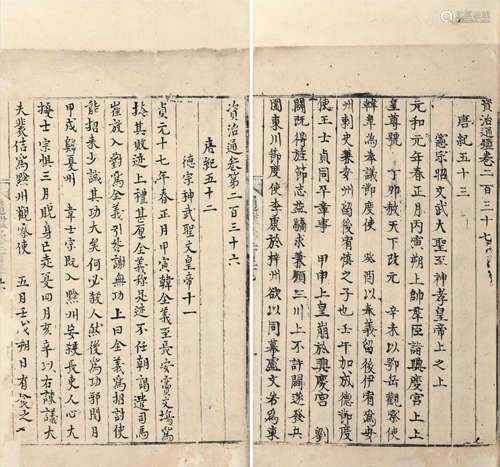 資治通鑑卷二百三十七
唐紀五十三
憲宗昭文武大聖至神孝皇帝上之上
元和元年春正月丙寅朔上帥羣臣詣興慶宮上上
皇尊號 丁卯赦天下改元 辛未以鄂岳觀察使
韓皐為奉議節度使 癸酉以奉義留後伊宥為安
州刺史兼安州留後宥慎之子也壬午加成德節度
使王士貞同平章事 甲申上皇崩於興慶宮 劉
闢既得旌節志益驕求兼領三川上不許闢遂發兵
圍東川節度使李康於梓州欲以同幕盧文若為東
資治通鑑卷第二百三十六
唐紀五十二
德宗神武聖文皇帝十一
貞元十七年春正月甲寅韓全義至長安竇文場為
掩其敗迹上禮其厚全義稱足迹不任朝謁遣司馬
崔放入對為全義引咎謝無功上曰全義為招討使
能招來少誠其功大矣何必殺人然後為功邪閏月
甲戌歸夏州 韋士宗既入黔州妄殺長吏人心大
擾士宗懼三月脫身亡走夏四月辛亥以右諫議大
夫裴佶為黔州觀察使 五月壬戌朔日有食之